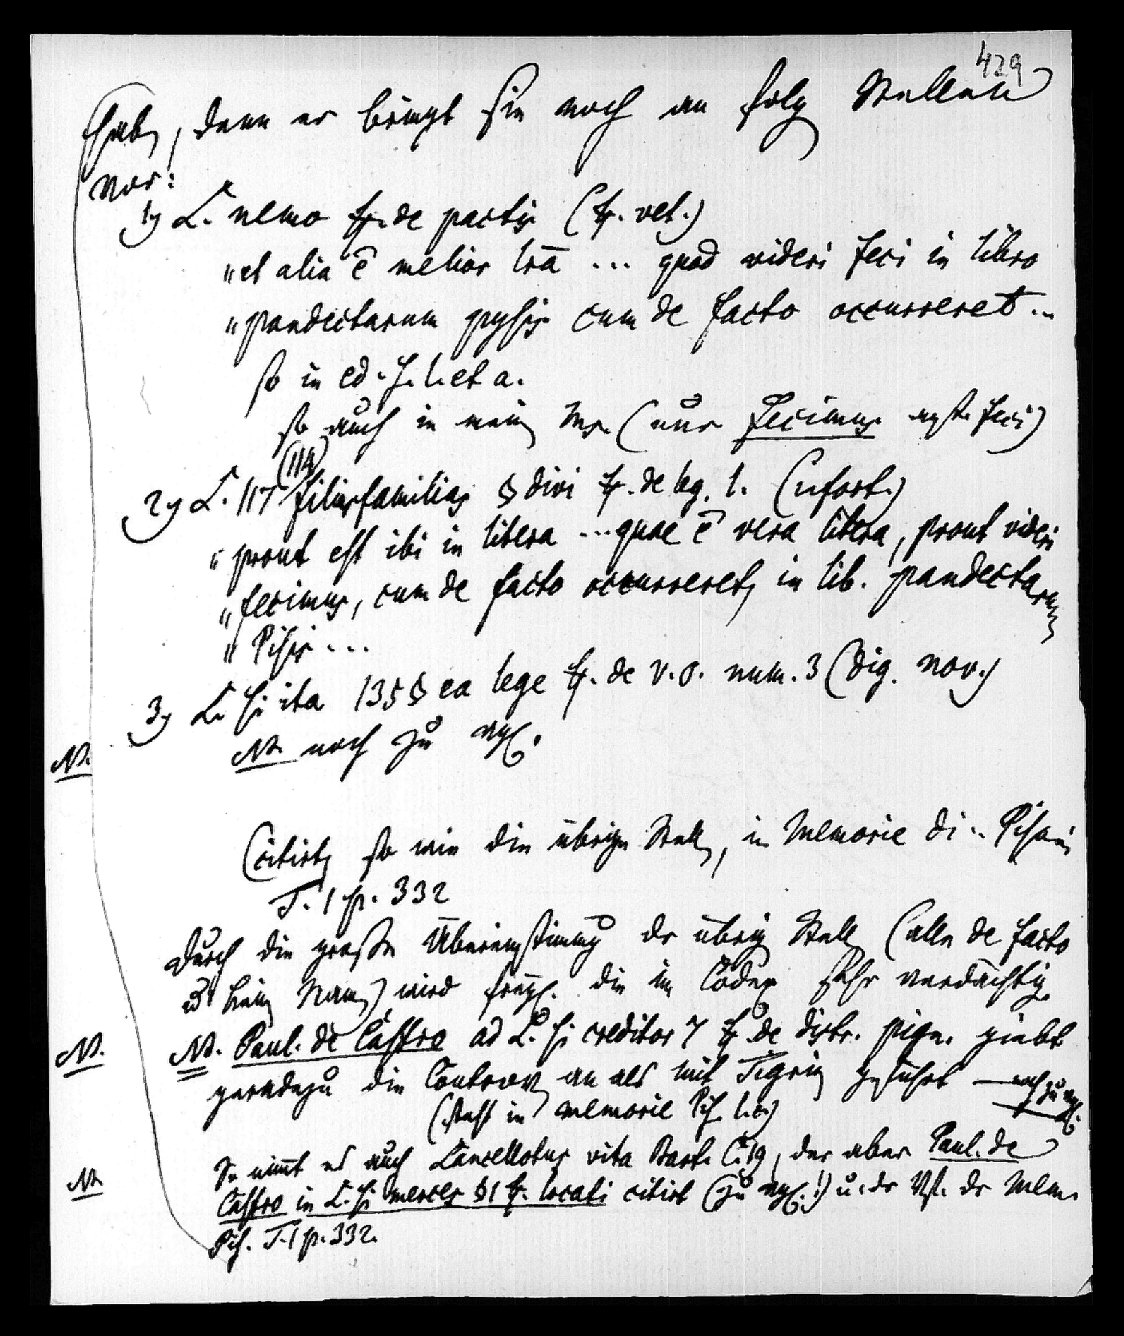 429
hab, denn er bringt sie noch an folg Stellen
vor:
1) L. nemo ff. de pactis (ff. vet.)
"et alia ē melior lrā ... quod videri feci in libro
"pandectarum pysis cum de facto occurreret ...
so in ed. s. l. et a.
so auch in mein Ms. (nur fecimus anst. feci)
(114)
2) L. 117 filiusfamilias § divi ff. de leg. 1. (infort.)
"prout est ibi in litera ... quae ē vera litera, prout videri
"fecimus, cum de facto occurreret, in lib. pandectarum
"Pisis ...
3) L. si ita 135 § ea lege ff. de v. o. num. 3 (dig. nov.)
NB. NB. noch zu vgl.
(citirt, so wie die übrigen Stell, in Memorie di .. Pisani
T. 1 p. 332
Durch die große Übereinstimmg der übrig Stell (alle de facto
u kein Nam) wird die im Codex sehr verdächtig.
NB. NB. Paul. de Castro ad L. si creditor 7 ff. de distr. pign. giebt
geradezu die an als mit Tigrin geführt — noch zu vgl.
(steht in memorie Pis. l. c.)
NB. So nimt es auch Lancellotus vita Bart. C. 19, der aber Paul. de
Castro in L. si merces § 1 ff. locati citirt (zu vgl.!) u. der Vf. der Mem.
Pis. T. 1 p. 332.